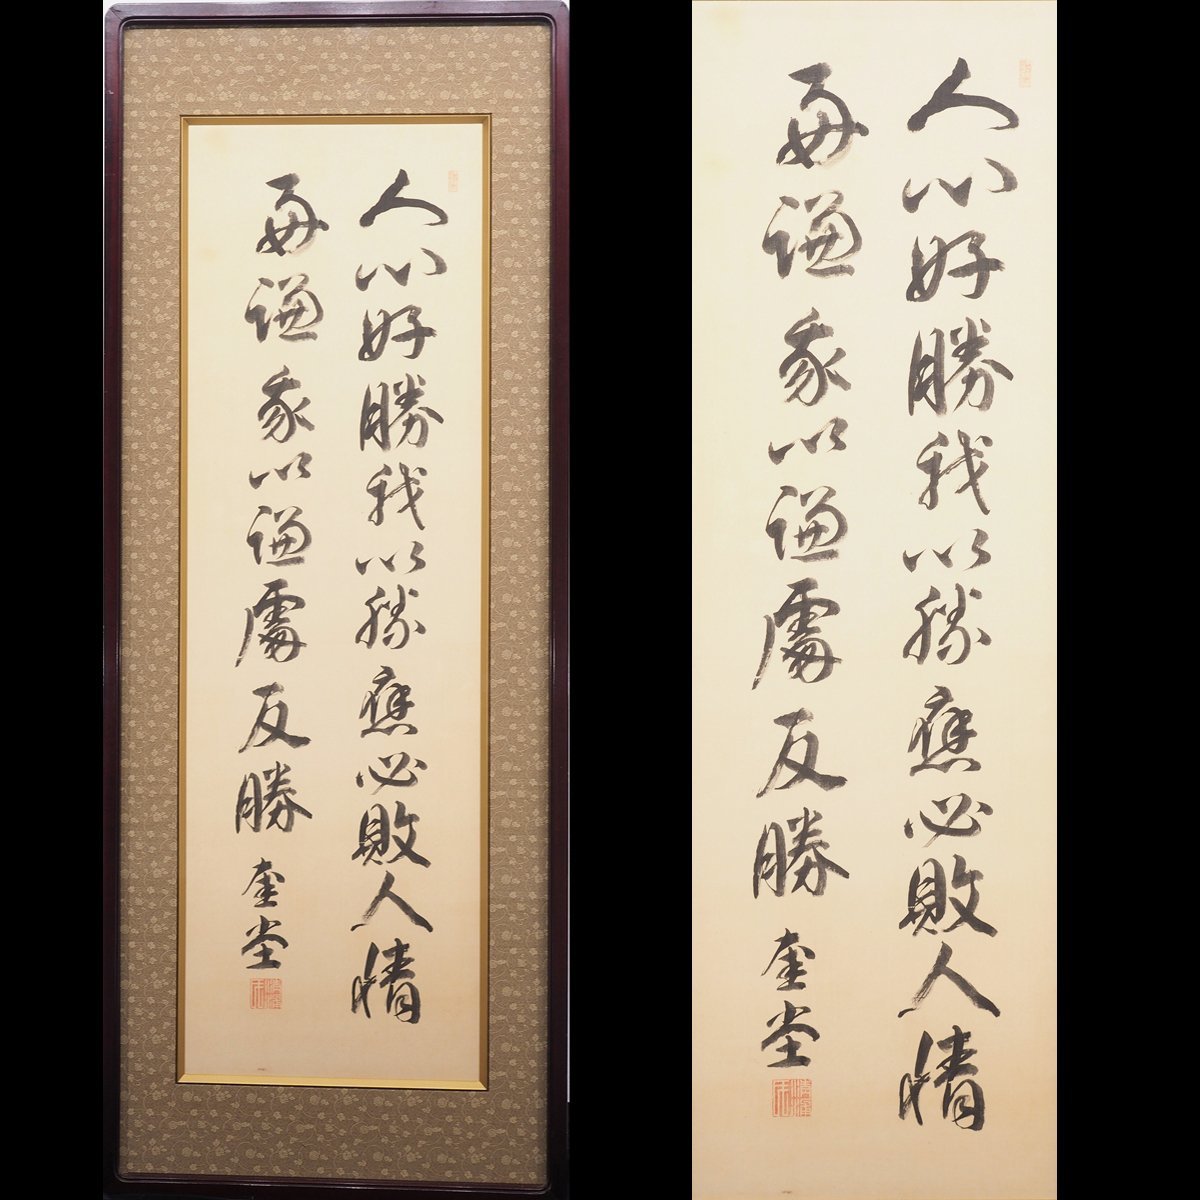 人心好勝我以勝應必敗人情
好謙我以謙處反勝
奎堂
人心好勝我以勝應必敗人情
好謙我以謙處反勝
奎堂